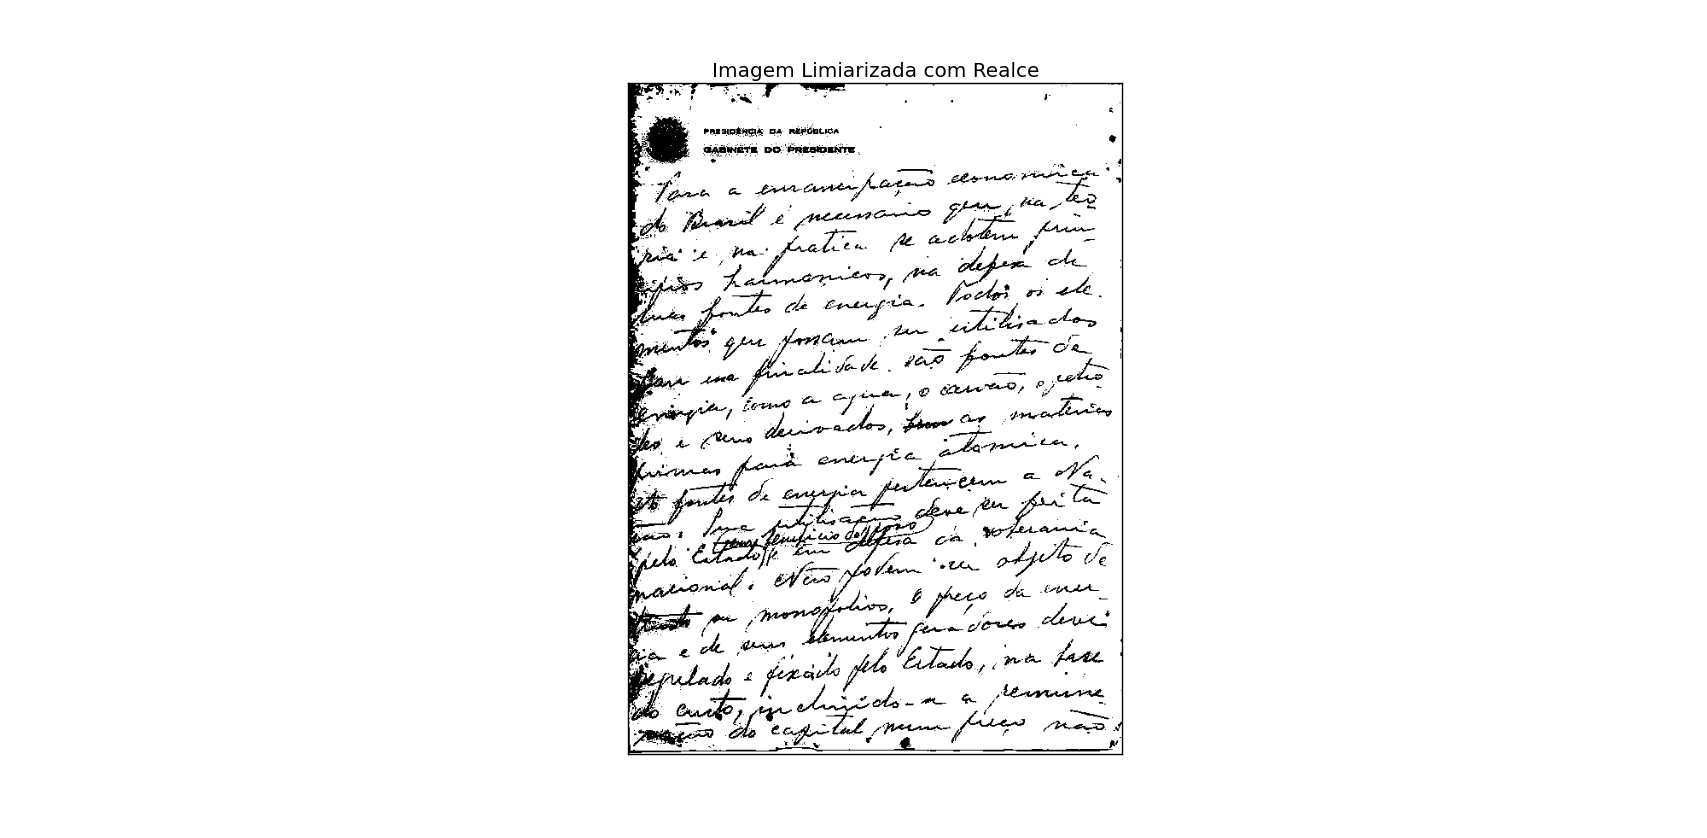 Imagem Limiarizada com Realce
PRESIDÊNCIA DA REPÚBLICA
GABINETE DO PRESIDENTE
Para a emancipação economica
do Brasil é necessario que, na teo
ria e na pratica se adotem prin
cipios harmonicos, na defesa de
suas fontes de energia. Todos os ele-
mentos que possam ser utilisados
para essa finalidade são fontes de
energia, como a agua, o carvão, o petro
leo e seus derivados, as materias
primas para energia atomica.
As fontes de energia pertencem a Na-
ção. Sua utilisação deve ser feita
(como beneficio do povo)
pelo Estado e em defesa da soberania
nacional. Não podem ser objeto de
trusts ou monopolios, o preço da ener_
gia e de seus elementos geradores deve
regulado e fixado pelo Estado, na base
do custo, incluindo-se a remune
ração do capital num preço não